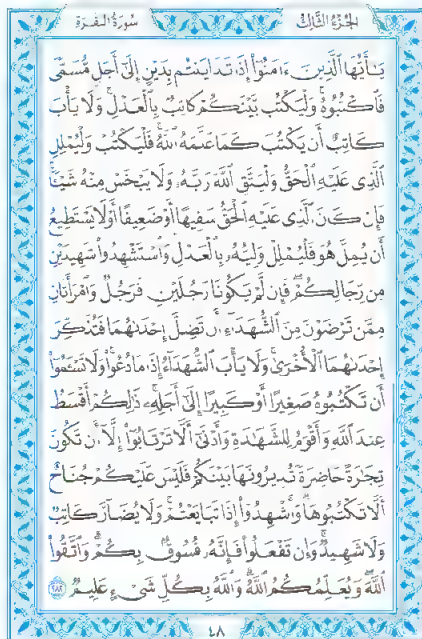 الجزء الثالث سورة البقرة
يَٰٓأَيُّهَا ٱلَّذِينَ ءَامَنُوٓا۟ إِذَا تَدَايَنتُم بِدَيْنٍ إِلَىٰٓ أَجَلٍ مُّسَمًّى
فَٱكْتُبُوهُ وَلْيَكْتُب بَّيْنَكُمْ كَاتِبٌۢ بِٱلْعَدْلِ وَلَا يَأْبَ
كَاتِبٌ أَن يَكْتُبَ كَمَا عَلَّمَهُ ٱللَّهُ فَلْيَكْتُبْ وَلْيُمْلِلِ
ٱلَّذِى عَلَيْهِ ٱلْحَقُّ وَلْيَتَّقِ ٱللَّهَ رَبَّهُۥ وَلَا يَبْخَسْ مِنْهُ شَيْـًٔا
فَإِن كَانَ ٱلَّذِى عَلَيْهِ ٱلْحَقُّ سَفِيهًا أَوْ ضَعِيفًا أَوْ لَا يَسْتَطِيعُ
أَن يُمِلَّ هُوَ فَلْيُمْلِلْ وَلِيُّهُۥ بِٱلْعَدْلِ وَٱسْتَشْهِدُوا۟ شَهِيدَيْنِ
مِن رِّجَالِكُمْ فَإِن لَّمْ يَكُونَا رَجُلَيْنِ فَرَجُلٌ وَٱمْرَأَتَانِ
مِمَّن تَرْضَوْنَ مِنَ ٱلشُّهَدَآءِ أَن تَضِلَّ إِحْدَىٰهُمَا فَتُذَكِّرَ
إِحْدَىٰهُمَا ٱلْأُخْرَىٰ وَلَا يَأْبَ ٱلشُّهَدَآءُ إِذَا مَا دُعُوا۟ وَلَا تَسْـَٔمُوٓا۟
أَن تَكْتُبُوهُ صَغِيرًا أَوْ كَبِيرًا إِلَىٰٓ أَجَلِهِۦ ذَٰلِكُمْ أَقْسَطُ
عِندَ ٱللَّهِ وَأَقْوَمُ لِلشَّهَٰدَةِ وَأَدْنَىٰٓ أَلَّا تَرْتَابُوٓا۟ إِلَّآ أَن تَكُونَ
تِجَٰرَةً حَاضِرَةً تُدِيرُونَهَا بَيْنَكُمْ فَلَيْسَ عَلَيْكُمْ جُنَاحٌ
أَلَّا تَكْتُبُوهَا وَأَشْهِدُوٓا۟ إِذَا تَبَايَعْتُمْ وَلَا يُضَآرَّ كَاتِبٌ
وَلَا شَهِيدٌ وَإِن تَفْعَلُوا۟ فَإِنَّهُۥ فُسُوقٌۢ بِكُمْ وَٱتَّقُوا۟
ٱللَّهَ وَيُعَلِّمُكُمُ ٱللَّهُ وَٱللَّهُ بِكُلِّ شَىْءٍ عَلِيمٌ ٢٨٢
٤٨